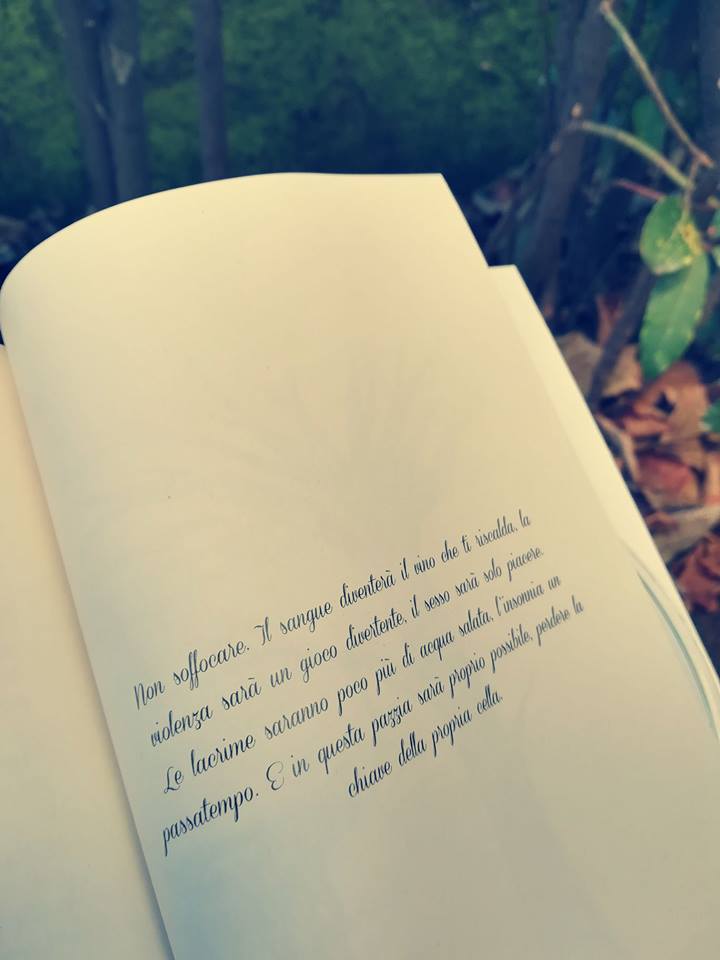 Non soffocare. Il sangue diventerà il vino che ti riscalda, la
violenza sarà un gioco divertente, il sesso sarà solo piacere.
Le lacrime saranno poco più di acqua salata, l'insonnia un
passatempo. E in questa pazzia sarà proprio possibile, perdere la
chiave della propria cella.